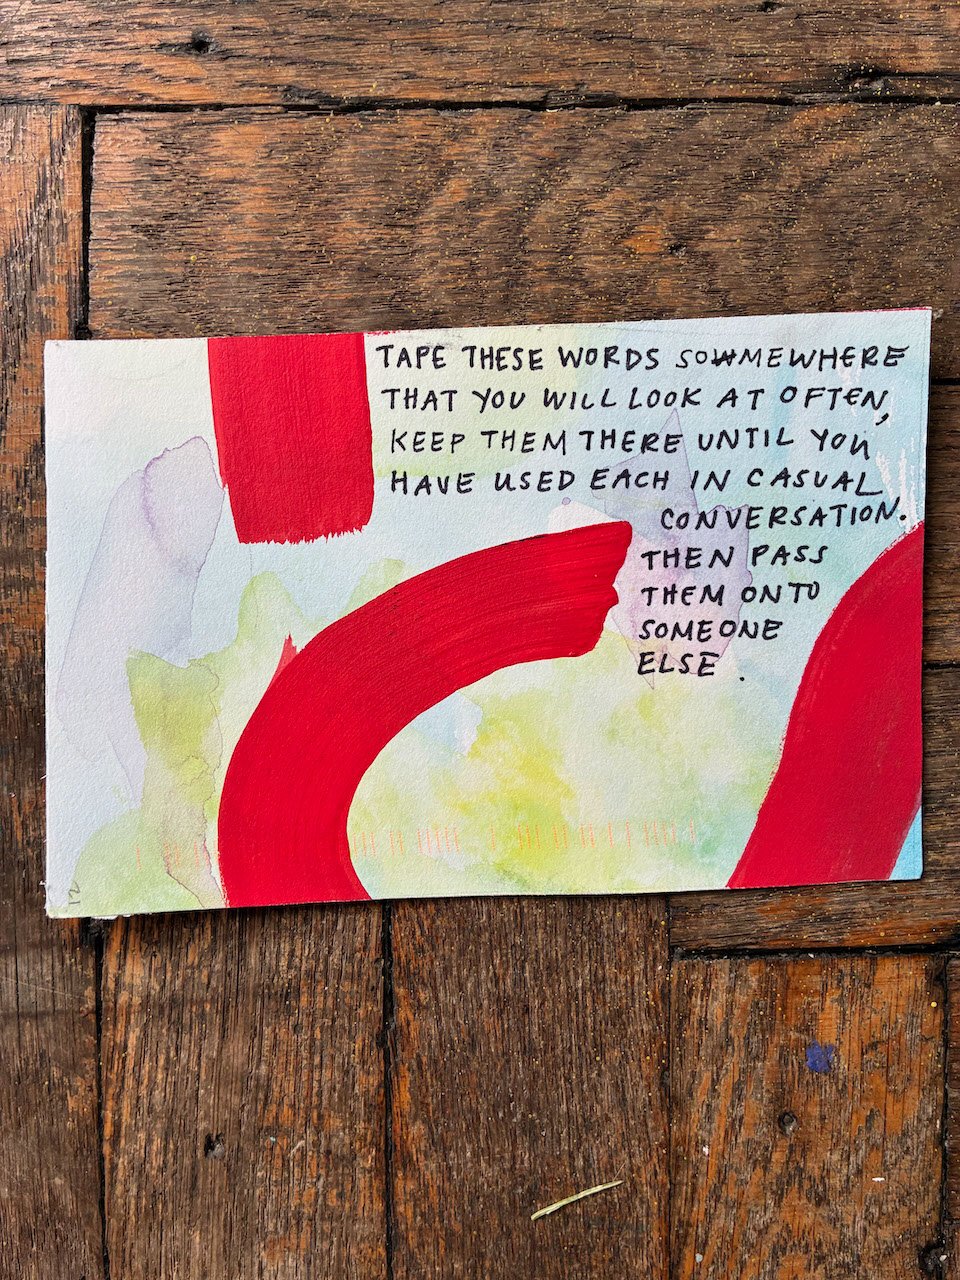 TAPE THESE WORDS SOMEWHERE
THAT YOU WILL LOOK AT OFTEN,
KEEP THEM THERE UNTIL YOU
HAVE USED EACH IN CASUAL
CONVERSATION.
THEN PASS
THEM ONTO
SOMEONE
ELSE.